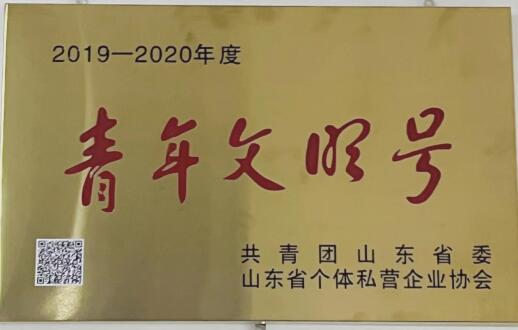 2019—2020年度
青年文明号
共青团山东省委
山东省个体私营企业协会